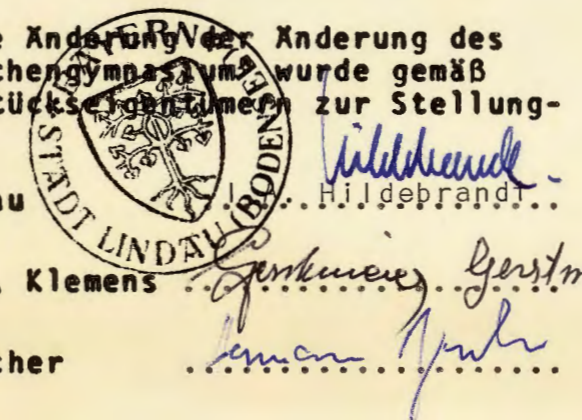 e Änderung der Änderung des
chengymnasiums wurde gemäß
tückseigentümern zur Stellung-
BAYERN
STADT LINDAU (BODENSEE)
au
Hildebrandt
Klemens
Gerstm
cher